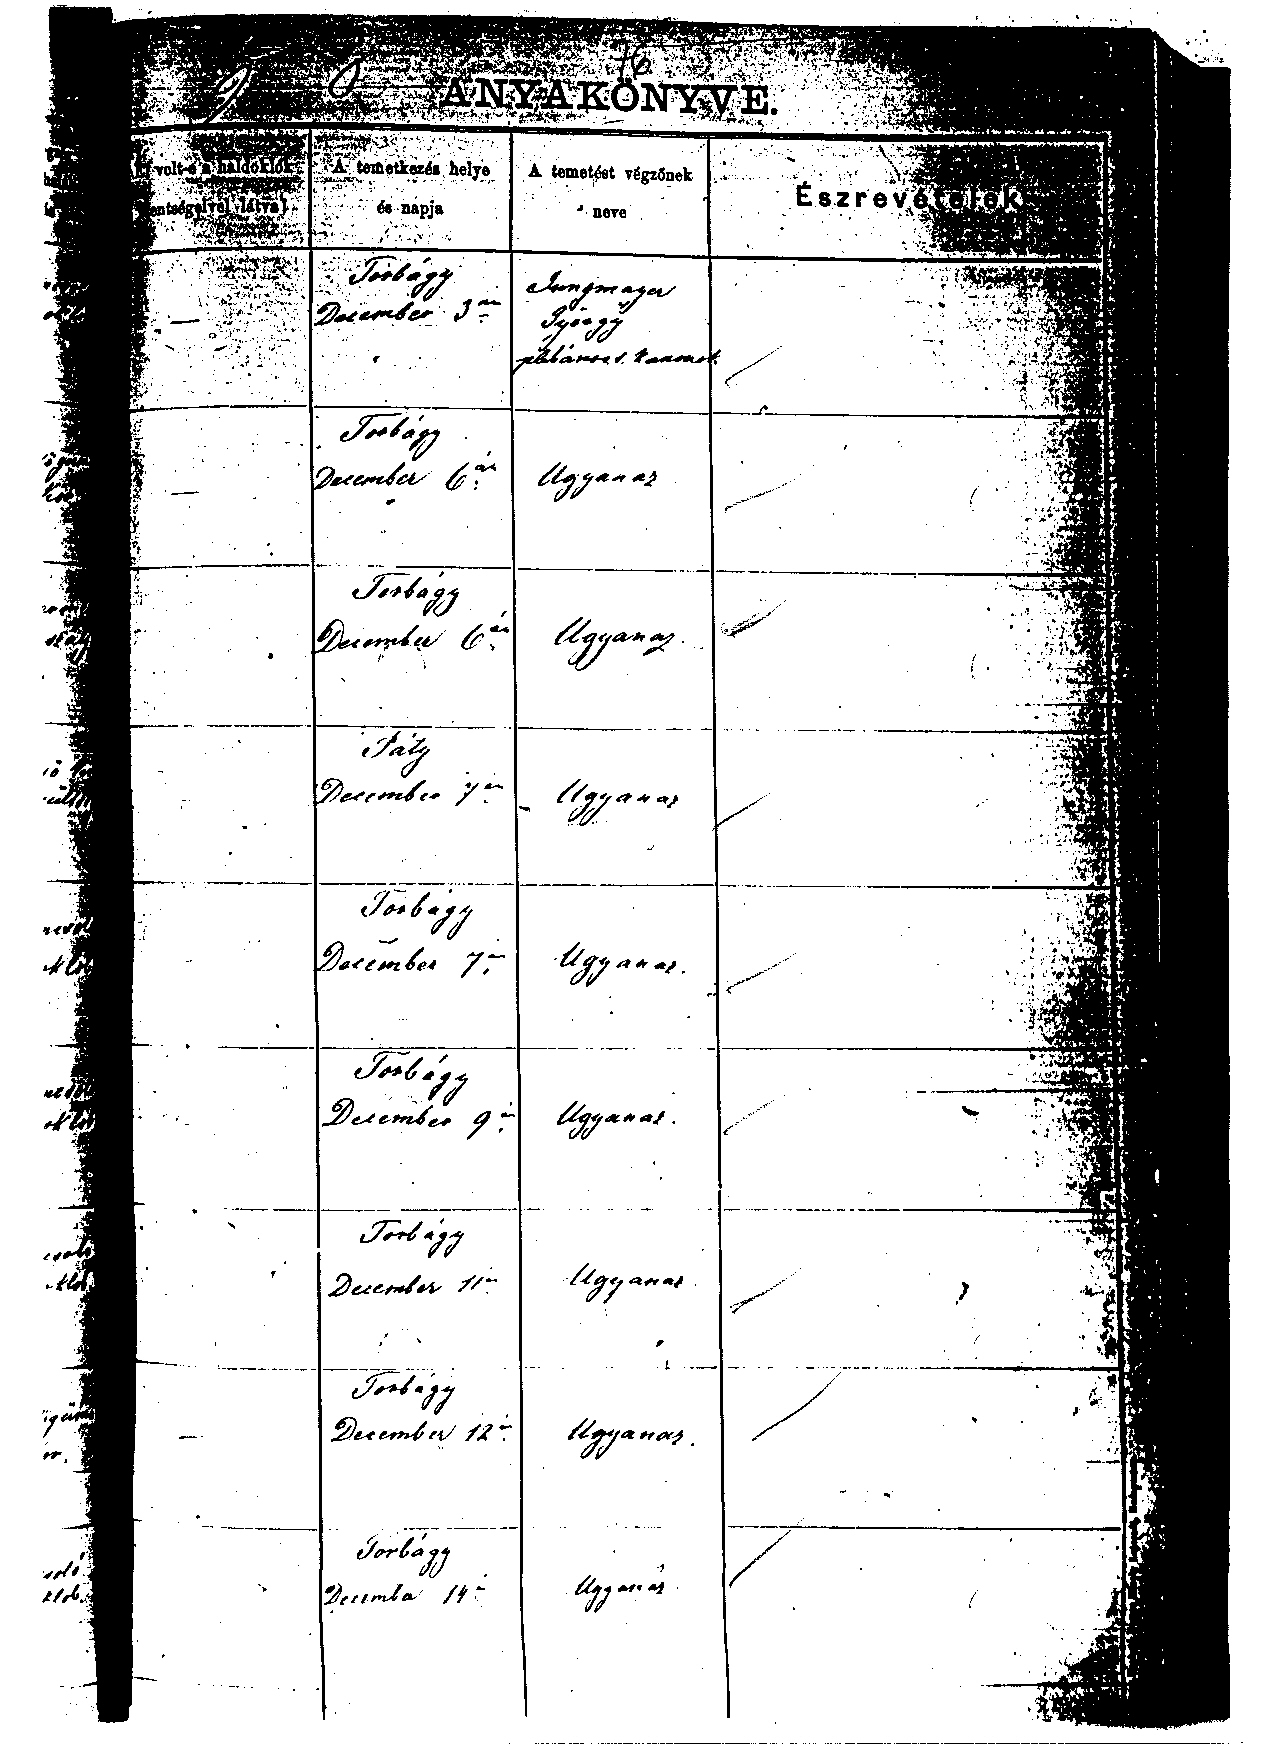 76
ANYAKÖNYVE.
volt-e a haldoklók
szentségeivel látva!
A temetkezés helye
és napja
A temetést végzőnek
neve
Észrevételek
—
Torbágy
December 3án
Jungmayer
György
plébános s. kanonok
—
Torbágy
December 6án
Ugyanaz
Torbágy
December 6án
Ugyanaz.
Páty
December 7én
Ugyanaz
Torbágy
December 7én
Ugyanaz.
Torbágy
December 9én
Ugyanaz.
Torbágy
December 11én
Ugyanaz
—
Torbágy
December 12én
Ugyanaz.
Torbágy
December 14én
Ugyanaz